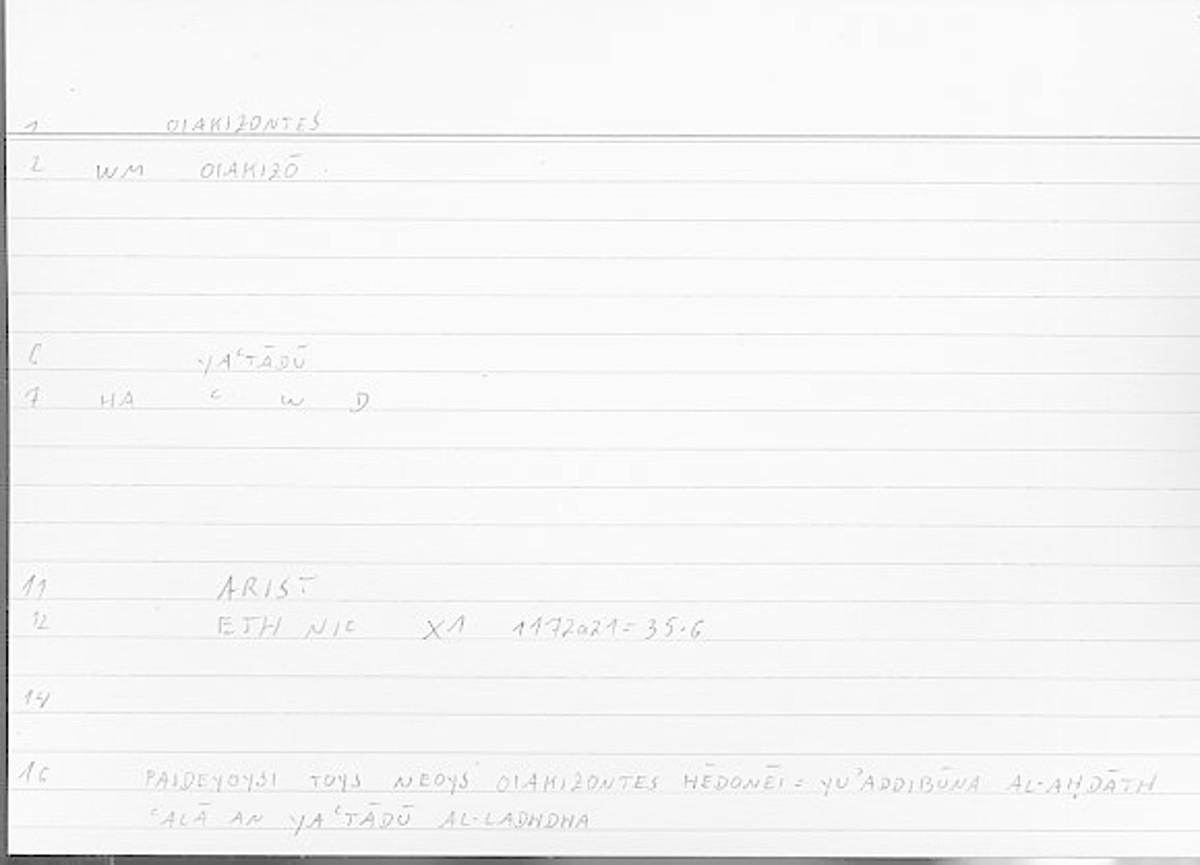 1 OIAKIZONTES
2 WM OIAKIZŌ
6 YAʿTĀDŪ
7 HA ʿ W D
11 ARIST
12 ETH NIC X1 1172a21 = 35.6
14
16 PAIDEYOYSI TOYS NEOYS OIAKIZONTES HĒDONĒI = YUʾADDIBŪNA AL-AḤDĀTH
ʿALĀ AN YAʿTĀDŪ AL-LADHDHA